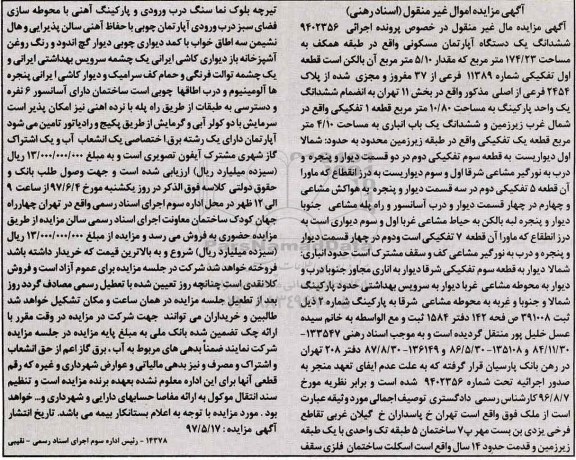 آگهی مزایده اموال غیر منقول (اسناد رهنی)
آگهی مزایده مال غیر منقول در خصوص پرونده اجرائی ۹۴۰۲۳۵۶
ششدانگ یک دستگاه آپارتمان مسکونی واقع در طبقه همکف به
مساحت ۱۷۴/۲۳ متر مربع که مقدار ۵/۱۰ متر مربع آن بالکن است قطعه
اول تفکیکی شماره ۱۱۳۸۹ فرعی از ۳۷ مفروز و مجزی شده از پلاک
۲۴۵۴ فرعی از اصلی مذکور واقع در بخش ۱۱ تهران به انضمام ششدانگ
یک واحد پارکینگ به مساحت ۱۰/۸۰ متر مربع قطعه ۱ تفکیکی واقع در
شمال غرب زیرزمین و ششدانگ یک باب انباری به مساحت ۴/۱۰ متر
مربع قطعه یک تفکیکی واقع در طبقه زیرزمین محدود به حدود: شمالا
اول دیواریست به قطعه سوم تفکیکی دوم در دو قسمت دیوار و پنجره و
درب به نورگیر مشاعی شرقا اول و سوم دیواریست به درز انقطاع که ماورا
آن قطعه ۵ تفکیکی دوم در سه قسمت دیوار و پنجره به هواکش مشاعی
و چهارم در چهار قسمت دیوار و درب آسانسور و راه پله مشاعی جنوبا
دیوار و پنجره لبه بالکن به حیاط مشاعی غربا اول و سوم دیواری است به
درز انقطاع که ماورا آن قطعه ۷ تفکیکی است ودوم در چهار قسمت دیوار
و پنجره و درب به نورگیر مشاعی کف و سقف مشترک است حدود انباری:
شمالا دیوار به قطعه سوم تفکیکی شرقا دیوار به اناری مجاور جنوبا درب و
دیوار به محوطه مشاعی غربا دیوار به سرویس بهداشتی حدود پارکینگ
شمالا و جنوبا و غربه به محوطه مشاعی شرقا به پارکینگ شماره ۲ ذیل
ثبت ۳۹۱۰۰۸ ص فحه ۱۴۲ دفتر ۱۵۸۴ ثبت و مع الواسطه به خانم سیده
عسل خلیل پور منتقل گردیده است و به موجب اسناد رهنی ۱۳۳۵۴۷-
۸۴/۱۱/۳۰ و ۱۳۵۱۰۸-۸۶/۵/۳۰ و ۱۳۶۱۴۹-۸۷/۸/۳۰ دفتر ۲۰۸ تهران
در رهن بانک پارسیان قرار گرفته که به علت عدم ایفای تعهد منجر به
صدور اجرائیه تحت شماره ۹۴۰۲۳۵۶ شده است و برابر نظریه مورخ
۹۶/۸/۷ کارشناس رسمی دادگستری توصیف اجمالی مورد وثیقه عبارت
است از ملک فوق واقع است تهران خ پاسداران خ گیلان غربی تقاطع
فرخی یزدی بن بست مهر پ۷ ساختمان ۵ طبقه تک واحدی با یک طبقه
زیرزمین و قدمت حدود ۱۴ سال واقع است اسکلت ساختمان فلزی سقف
تیرچه بلوک نما سنگ درب ورودی و پارکینگ آهنی با محوطه سازی
فضای سبز درب ورودی آپارتمان چوبی با حفاظ آهنی سالن پذیرایی و هال
نشیمن سه اطاق خواب با کمد دیواری چوبی دیوار گچ اندود و رنگ روغن
آشپزخانه باز دیواری کاشی ایرانی یک چشمه سرویس بهداشتی ایرانی و
یک چشمه توالت فرنگی و حمام کف سرامیک و دیوار کاشی ایرانی پنجره
ها آلومینیوم و درب اطاقها چوبی است ساختمان دارای آسانسور ۶ نفره
و دسترسی به طبقات از طریق راه پله با نرده اهنی نیز امکان پذیر است
سرمایش با دو کولر آبی و گرمایش از طریق پکیج و رادیاتور تامین می شود
آپارتمان دارای یک رشته برق اختصاصی یک انشعاب آب و یک اشتراک
گاز شهری مشترک آیفون تصویری است و به مبلغ ۱۳/۰۰۰/۰۰۰/۰۰۰ ریال
(سیزده میلیارد ریال) ارزیابی شده است و جهت وصول طلب بانک و
حقوق دولتی کلاسه فوق الذکر در روز یکشنبه مورخ ۹۷/۶/۴ از ساعت ۹
الی ۱۲ ظهر در محل اداره سوم اجرای اسناد رسمی واقع در تهران چهارراه
جهان کودک ساختمان معاونت اجرای اسناد رسمی سالن مزایده از طریق
مزایده حضوری به فروش می رسد و مزایده از مبلغ ۱۳/۰۰۰/۰۰۰/۰۰۰ ریال
(سیزده میلیارد ریال) شروع و به بالاترین قیمت که خریدار داشته باشد
فروخته خواهد شد شرکت در جلسه مزایده برای عموم آزاد است و فروش
کلا نقدی است چنانچه روز تعیین شده با تعطیل رسمی مصادف گردد روز
بعد از تعطیل جلسه مزایده در همان ساعت و مکان تشکیل خواهد شد
طالبین و خریداران می توانند جهت شرکت در مزایده در وقت مقرر با
ارائه چک تضمین شده بانک ملی به مبلغ پایه مزایده در جلسه مزایده
شرکت نمایند ضمناً بدهی های مربوط به آب، برق گاز اعم از حق انشعاب
و اشتراک و مصرف و نیز بدهی مالیاتی و عوارض شهرداری و غیره که رقم
قطعی آنها برای این اداره معلوم نشده بعهده برنده مزایده است و تنظیم
سند انتقال موکول به ارائه مفاصا حسابهای دارایی و شهرداری و... خواهد
بود. مورد مزایده با توجه به اعلام بستانکار بیمه می باشد. تاریخ انتشار
آگهی مزایده: ۹۷/۵/۱۷
۱۴۳۷۸ - رئیس اداره سوم اجرای اسناد رسمی - نقیبی